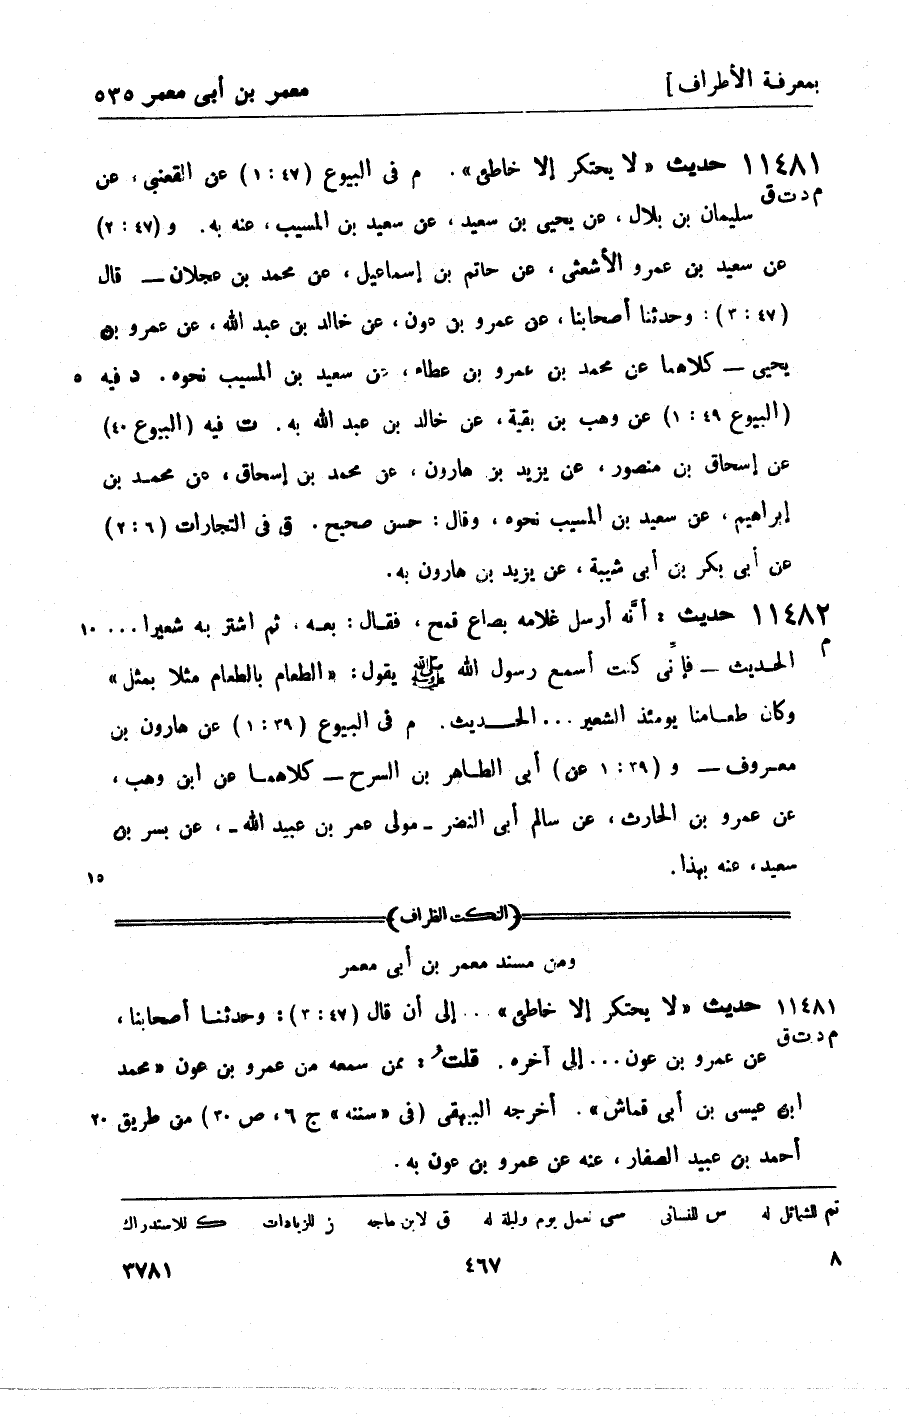 بمعرفة الأطراف] معمر بن أبى معمر ٥٣٥
١١٤٨١ حديث «لا يحتكر إلا خاطئ». م فى البيوع (٤٧ : ١) عن القعنبى، عن
م د ت ق سليمان بن بلال، عن يحيى بن سعيد، عن سعيد بن المسيب، عنه به. و (٤٧ : ٢)
عن سعيد بن عمرو الأشعثى، عن حاتم بن إسماعيل، عن محمد بن عجلان ــ قال
(٤٧ : ٣): وحدثنا أصحابنا، عن عمرو بن عون، عن خالد بن عبد الله، عن عمرو بن
يحيى ــ كلاهما عن محمد بن عمرو بن عطاء، عن سعيد بن المسيب نحوه. د فيه ٥
(البيوع ٤٩ : ١) عن وهب بن بقية، عن خالد بن عبد الله به. ت فيه (البيوع ٤٠)
عن إسحاق بن منصور، عن يزيد بن هارون، عن محمد بن إسحاق، عن محمد بن
إبراهيم، عن سعيد بن المسيب نحوه، وقال: حسن صحيح. ق فى التجارات (٦ : ٢)
عن أبى بكر بن أبى شيبة، عن يزيد بن هارون به.
١١٤٨٢ حديث: أنَّه أرسل غلامه بصاع قمح، فقال: بعه، ثم اشتر به شعيرا... ١٠
م الحديث ــ فإنِّى كنت أسمع رسول الله ﷺ يقول: «الطعام بالطعام مثلا بمثل»
وكان طعامنا يومئذ الشعير... الحديث. م فى البيوع (٣٩ : ١) عن هارون بن
معروف ــ و (٣٩ : ١ عن) أبى الطاهر بن السرح ــ كلاهما عن ابن وهب،
عن عمرو بن الحارث، عن سالم أبى النضر ـ مولى عمر بن عبيد الله ـ، عن بسر بن
سعيد، عنه بهذا. ١٥
(النكت الظراف)
ومن مسند معمر بن أبى معمر
١١٤٨١ حديث «لا يحتكر إلا خاطئ»... إلى أن قال (٤٧ : ٣): وحدثنا أصحابنا،
م د ت ق عن عمرو بن عون... إلى آخره. قلتُ: ممن سمعه من عمرو بن عون «محمد
ابن عيسى بن أبى قماش». أخرجه البيهقى (فى «سننه» ج ٦، ص ٣٠) من طريق ٢٠
أحمد بن عبيد الصفار، عنه عن عمرو بن عون به.
تم للشمائل له س للنسائى سى لعمل يوم وليلة له ق لابن ماجه ز للزيادات ك للاستدراك
٨ ٤٦٧ ٣٧٨١